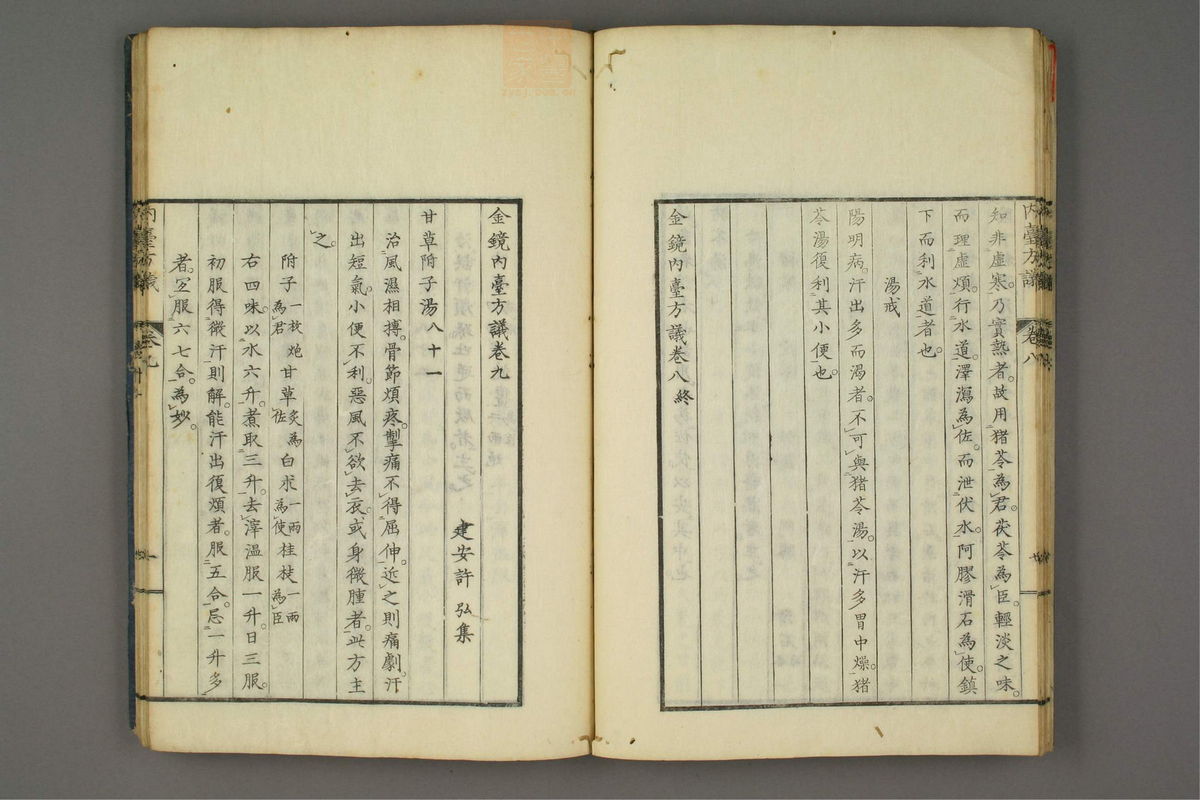 知非虛寒。乃實熱者。故用猪苓為君。茯苓為臣。輕淡之味。
而理虛煩。行水道。澤瀉為佐。而泄伏水。阿膠滑石為使。鎮
下而利水道者也。
湯戒
陽明病。汗出多而渴者。不可與猪苓湯。以汗多胃中燥。猪
苓湯復利其小便也。
金鏡內臺方議卷八終
內臺方議
卷八
金鏡內臺方議卷九
建安許弘集
甘草附子湯八十一
治風濕相搏。骨節煩疼。掣痛不得屈伸。近之則痛劇。汗
出短氣。小便不利。惡風不欲去衣。或身微腫者。此方主
之。
附子一枚炮為君 甘草炙為佐 白朮一兩為使 桂枝一兩為臣
右四味。以水六升。煮取三升。去滓溫服一升。日三服。
初服得微汗則解。能汗出復煩者。服五合。忌一升多
者。宜服六七合。為妙。
內臺方議
卷九